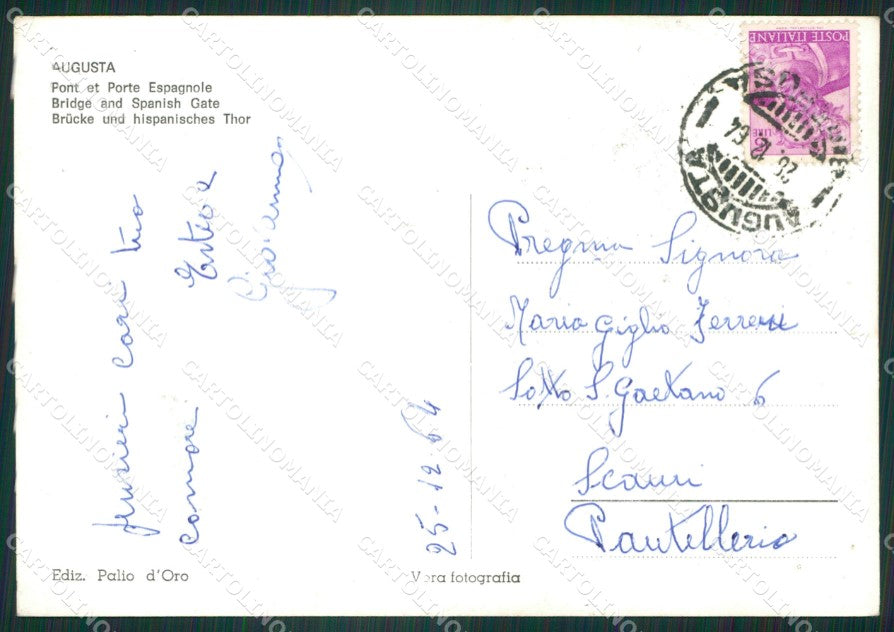 AUGUSTA
Pont et Porte Espagnole
Bridge and Spanish Gate
Brücke und hispanisches Thor
POSTE ITALIANE
LIRE
AUGUSTA
26.12.64
Pregma Signora
Maria Giglio Ferreri
Sotto S. Gaetano 6
Scauri
Pantelleria
pensieri cari tuo
comare
25-12-64
Ediz. Palio d'Oro
Vera fotografia
CARTOLINOMANIA